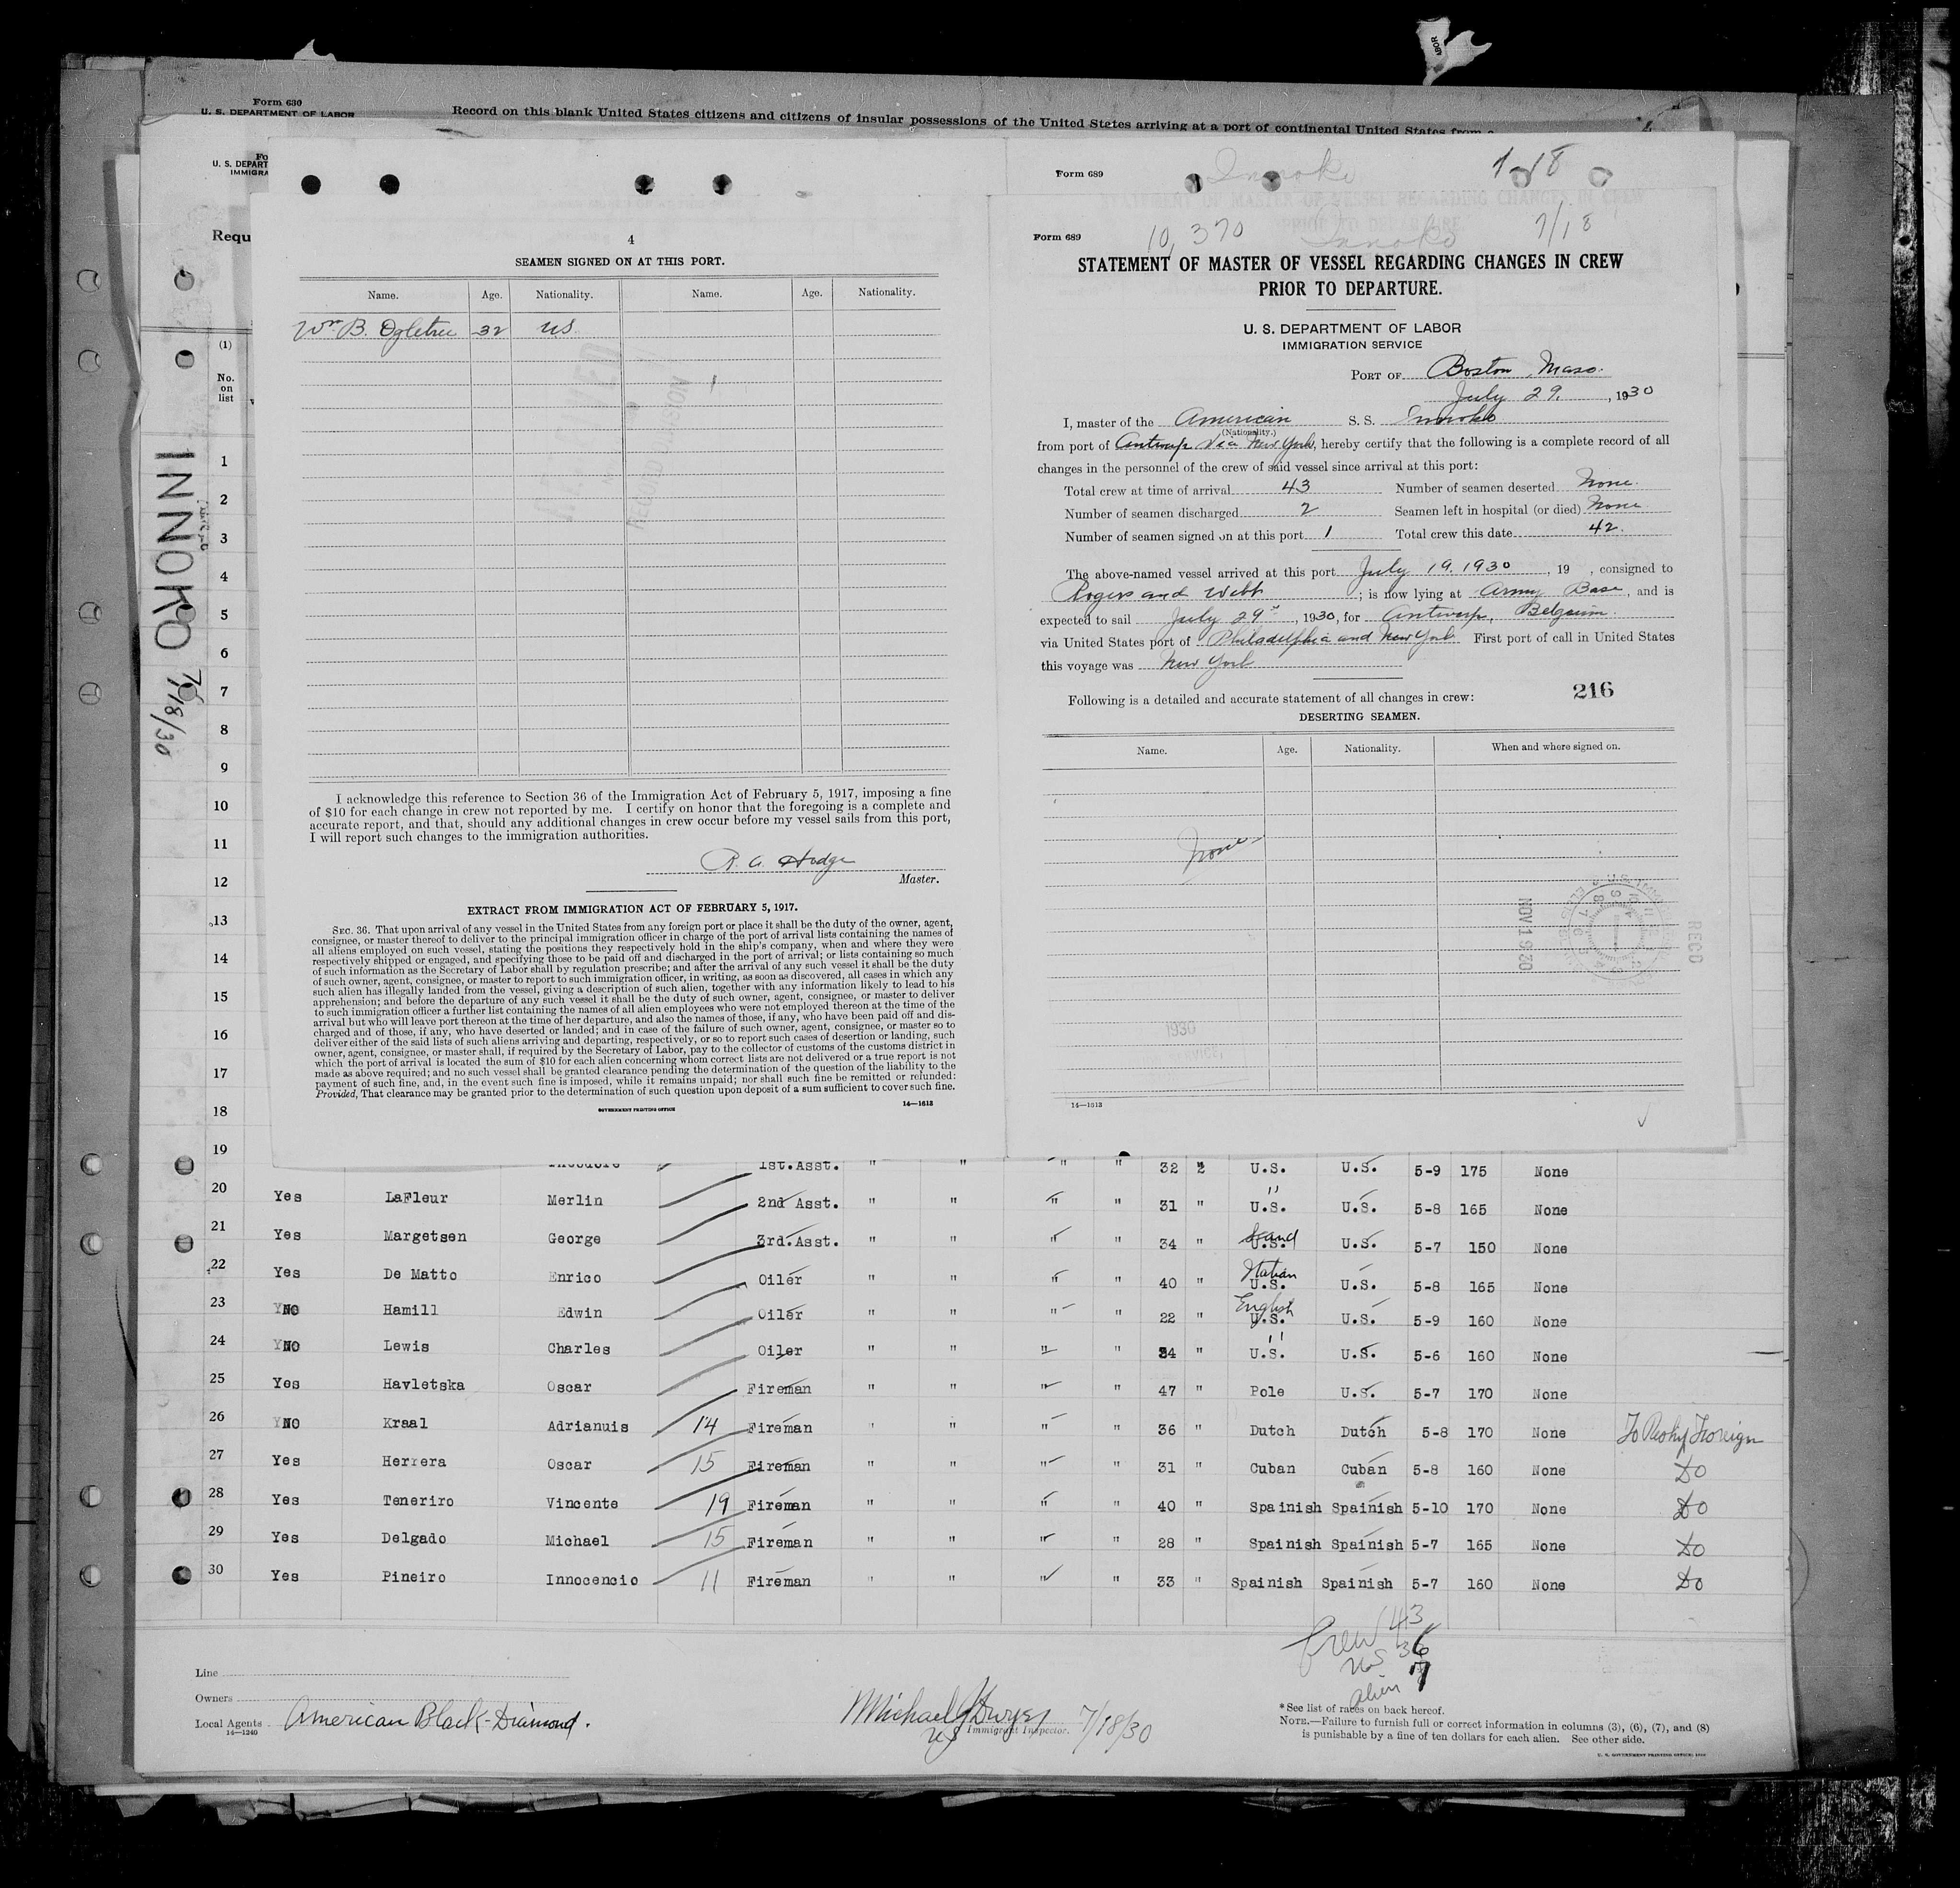 Form 630
U. S. DEPARTMENT OF LABOR
Record on this blank United States citizens and citizens of insular possessions of the United States arriving at a port of continental United States from a
U. S. DEPART
IMMIGRA
Requ
(1)
No.
on
list
INNOKO 7/18/30
4
SEAMEN SIGNED ON AT THIS PORT.
Name. Age. Nationality. Name. Age. Nationality.
Wm B. Ogletree 32 US.
1
I acknowledge this reference to Section 36 of the Immigration Act of February 5, 1917, imposing a fine
of $10 for each change in crew not reported by me. I certify on honor that the foregoing is a complete and
accurate report, and that, should any additional changes in crew occur before my vessel sails from this port,
I will report such changes to the immigration authorities.
R. A. Hodge
Master.
EXTRACT FROM IMMIGRATION ACT OF FEBRUARY 5, 1917.
SEC. 36. That upon arrival of any vessel in the United States from any foreign port or place it shall be the duty of the owner, agent,
consignee, or master thereof to deliver to the principal immigration officer in charge of the port of arrival lists containing the names of
all aliens employed on such vessel, stating the positions they respectively hold in the ship's company, when and where they were
respectively shipped or engaged, and specifying those to be paid off and discharged in the port of arrival; or lists containing so much
of such information as the Secretary of Labor shall by regulation prescribe; and after the arrival of any such vessel it shall be the duty
of such owner, agent, consignee, or master to report to such immigration officer, in writing, as soon as discovered, all cases in which any
such alien has illegally landed from the vessel, giving a description of such alien, together with any information likely to lead to his
apprehension; and before the departure of any such vessel it shall be the duty of such owner, agent, consignee, or master to deliver
to such immigration officer a further list containing the names of all alien employees who were not employed thereon at the time of the
arrival but who will leave port thereon at the time of her departure, and also the names of those, if any, who have been paid off and dis-
charged and of those, if any, who have deserted or landed; and in case of the failure of such owner, agent, consignee, or master so to
deliver either of the said lists of such aliens arriving and departing, respectively, or so to report such cases of desertion or landing, such
owner, agent, consignee, or master shall, if required by the Secretary of Labor, pay to the collector of customs of the customs district in
which the port of arrival is located the sum of $10 for each alien concerning whom correct lists are not delivered or a true report is not
made as above required; and no such vessel shall be granted clearance pending the determination of the question of the liability to the
payment of such fine, and, in the event such fine is imposed, while it remains unpaid; nor shall such fine be remitted or refunded:
Provided, That clearance may be granted prior to the determination of such question upon deposit of a sum sufficient to cover such fine.
GOVERNMENT PRINTING OFFICE
14—1613
Form 689
Innoko
Form 689
10,370 Innoko 7/18
STATEMENT OF MASTER OF VESSEL REGARDING CHANGES IN CREW
PRIOR TO DEPARTURE.
U. S. DEPARTMENT OF LABOR
IMMIGRATION SERVICE
PORT OF Boston, Mass.
July 29, 1930
I, master of the American S. S. Innoko
(Nationality.)
from port of Antwerp via New York, hereby certify that the following is a complete record of all
changes in the personnel of the crew of said vessel since arrival at this port:
Total crew at time of arrival 43 Number of seamen deserted None.
Number of seamen discharged 2 Seamen left in hospital (or died) None
Number of seamen signed on at this port 1 Total crew this date 42.
The above-named vessel arrived at this port July 19. 1930, 19 , consigned to
Rogers and Webb; is now lying at Army Base, and is
expected to sail July 29th, 1930, for Antwerp, Belgium.
via United States port of Philadelphia and New York First port of call in United States
this voyage was New York
Following is a detailed and accurate statement of all changes in crew:
216
DESERTING SEAMEN.
Name. Age. Nationality. When and where signed on.
None
NOV 1 1930
REC'D
1930
14—1613
1
2
3
4
5
6
7
8
9
10
11
12
13
14
15
16
17
18
19 Theodore 1st.Asst. " " " " 32 " U.S. U.S. 5-9 175 None
20 Yes LaFleur Merlin 2nd Asst. " " " " 31 " U.S. U.S. 5-8 165 None
21 Yes Margetsen George 3rd.Asst. " " " " 34 " Scand U.S. U.S. 5-7 150 None
22 Yes De Matto Enrico Oiler " " " " 40 " Italian U.S. U.S. 5-8 165 None
23 NO Hamill Edwin Oiler " " " " 22 " English U.S. U.S. 5-9 160 None
24 NO Lewis Charles Oiler " " " " 34 " " U.S. U.S. 5-6 160 None
25 Yes Havletska Oscar Fireman " " " " 47 " Pole U.S. 5-7 170 None
26 NO Kraal Adrianuis 14 Fireman " " " " 36 " Dutch Dutch 5-8 170 None To Reship Foreign
27 Yes Herrera Oscar 15 Fireman " " " " 31 " Cuban Cuban 5-8 160 None Do
28 Yes Teneriro Vincente 19 Fireman " " " " 40 " Spainish Spainish 5-10 170 None Do
29 Yes Delgado Michael 15 Fireman " " " " 28 " Spainish Spainish 5-7 165 None Do
30 Yes Pineiro Innocencio 11 Fireman " " " " 33 " Spainish Spainish 5-7 160 None Do
Crew 43
US 36
Alien 7
Line
Owners
Local Agents American Black-Diamond.
14—1240
Michael J Dwyer 7/18/30
US Immigrant Inspector.
* See list of races on back hereof.
NOTE.—Failure to furnish full or correct information in columns (3), (6), (7), and (8)
is punishable by a fine of ten dollars for each alien. See other side.
U. S. GOVERNMENT PRINTING OFFICE: